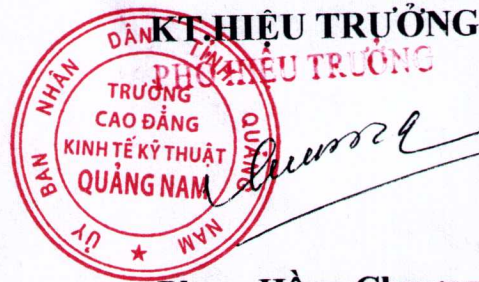 KT.HIỆU TRƯỞNG
PHÓ HIỆU TRƯỞNG
ỦY BAN NHÂN DÂN TỈNH QUẢNG NAM
TRƯỜNG
CAO ĐẲNG
KINH TẾ KỸ THUẬT
QUẢNG NAM
★
Hồng